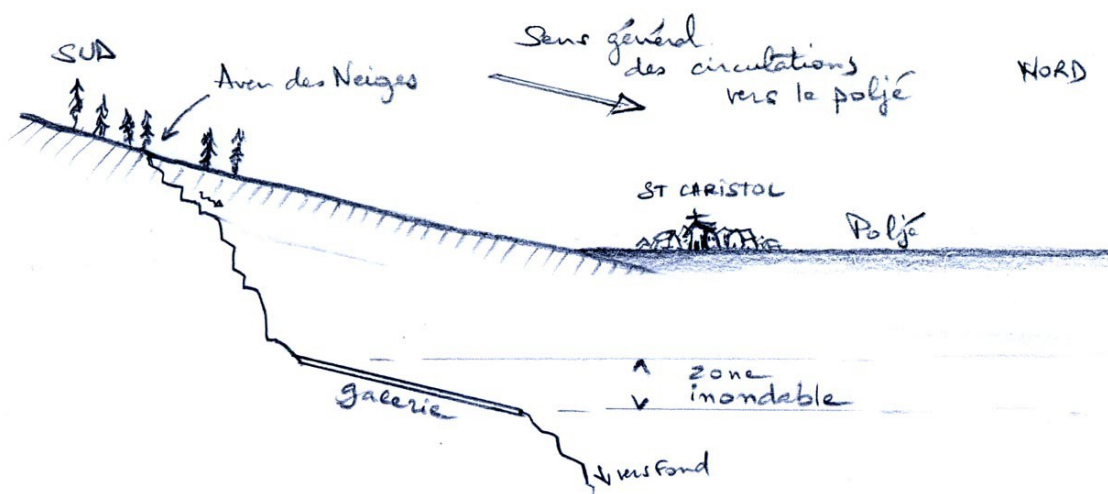 SUD
Aven des Neiges
Sens général
des circulations
vers le poljé
NORD
ST CARISTOL
Poljé
zone
inondable
galerie
vers fond